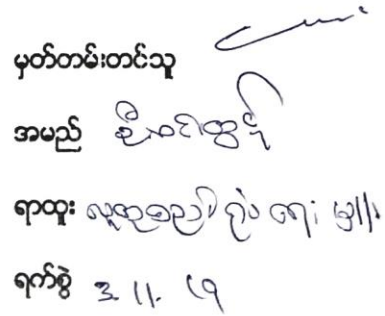 မှတ်တမ်းတင်သူ
အမည်
ရာထူး လူထုစည်းရုံးရေးမှူး
ရက်စွဲ 3. 11. 19